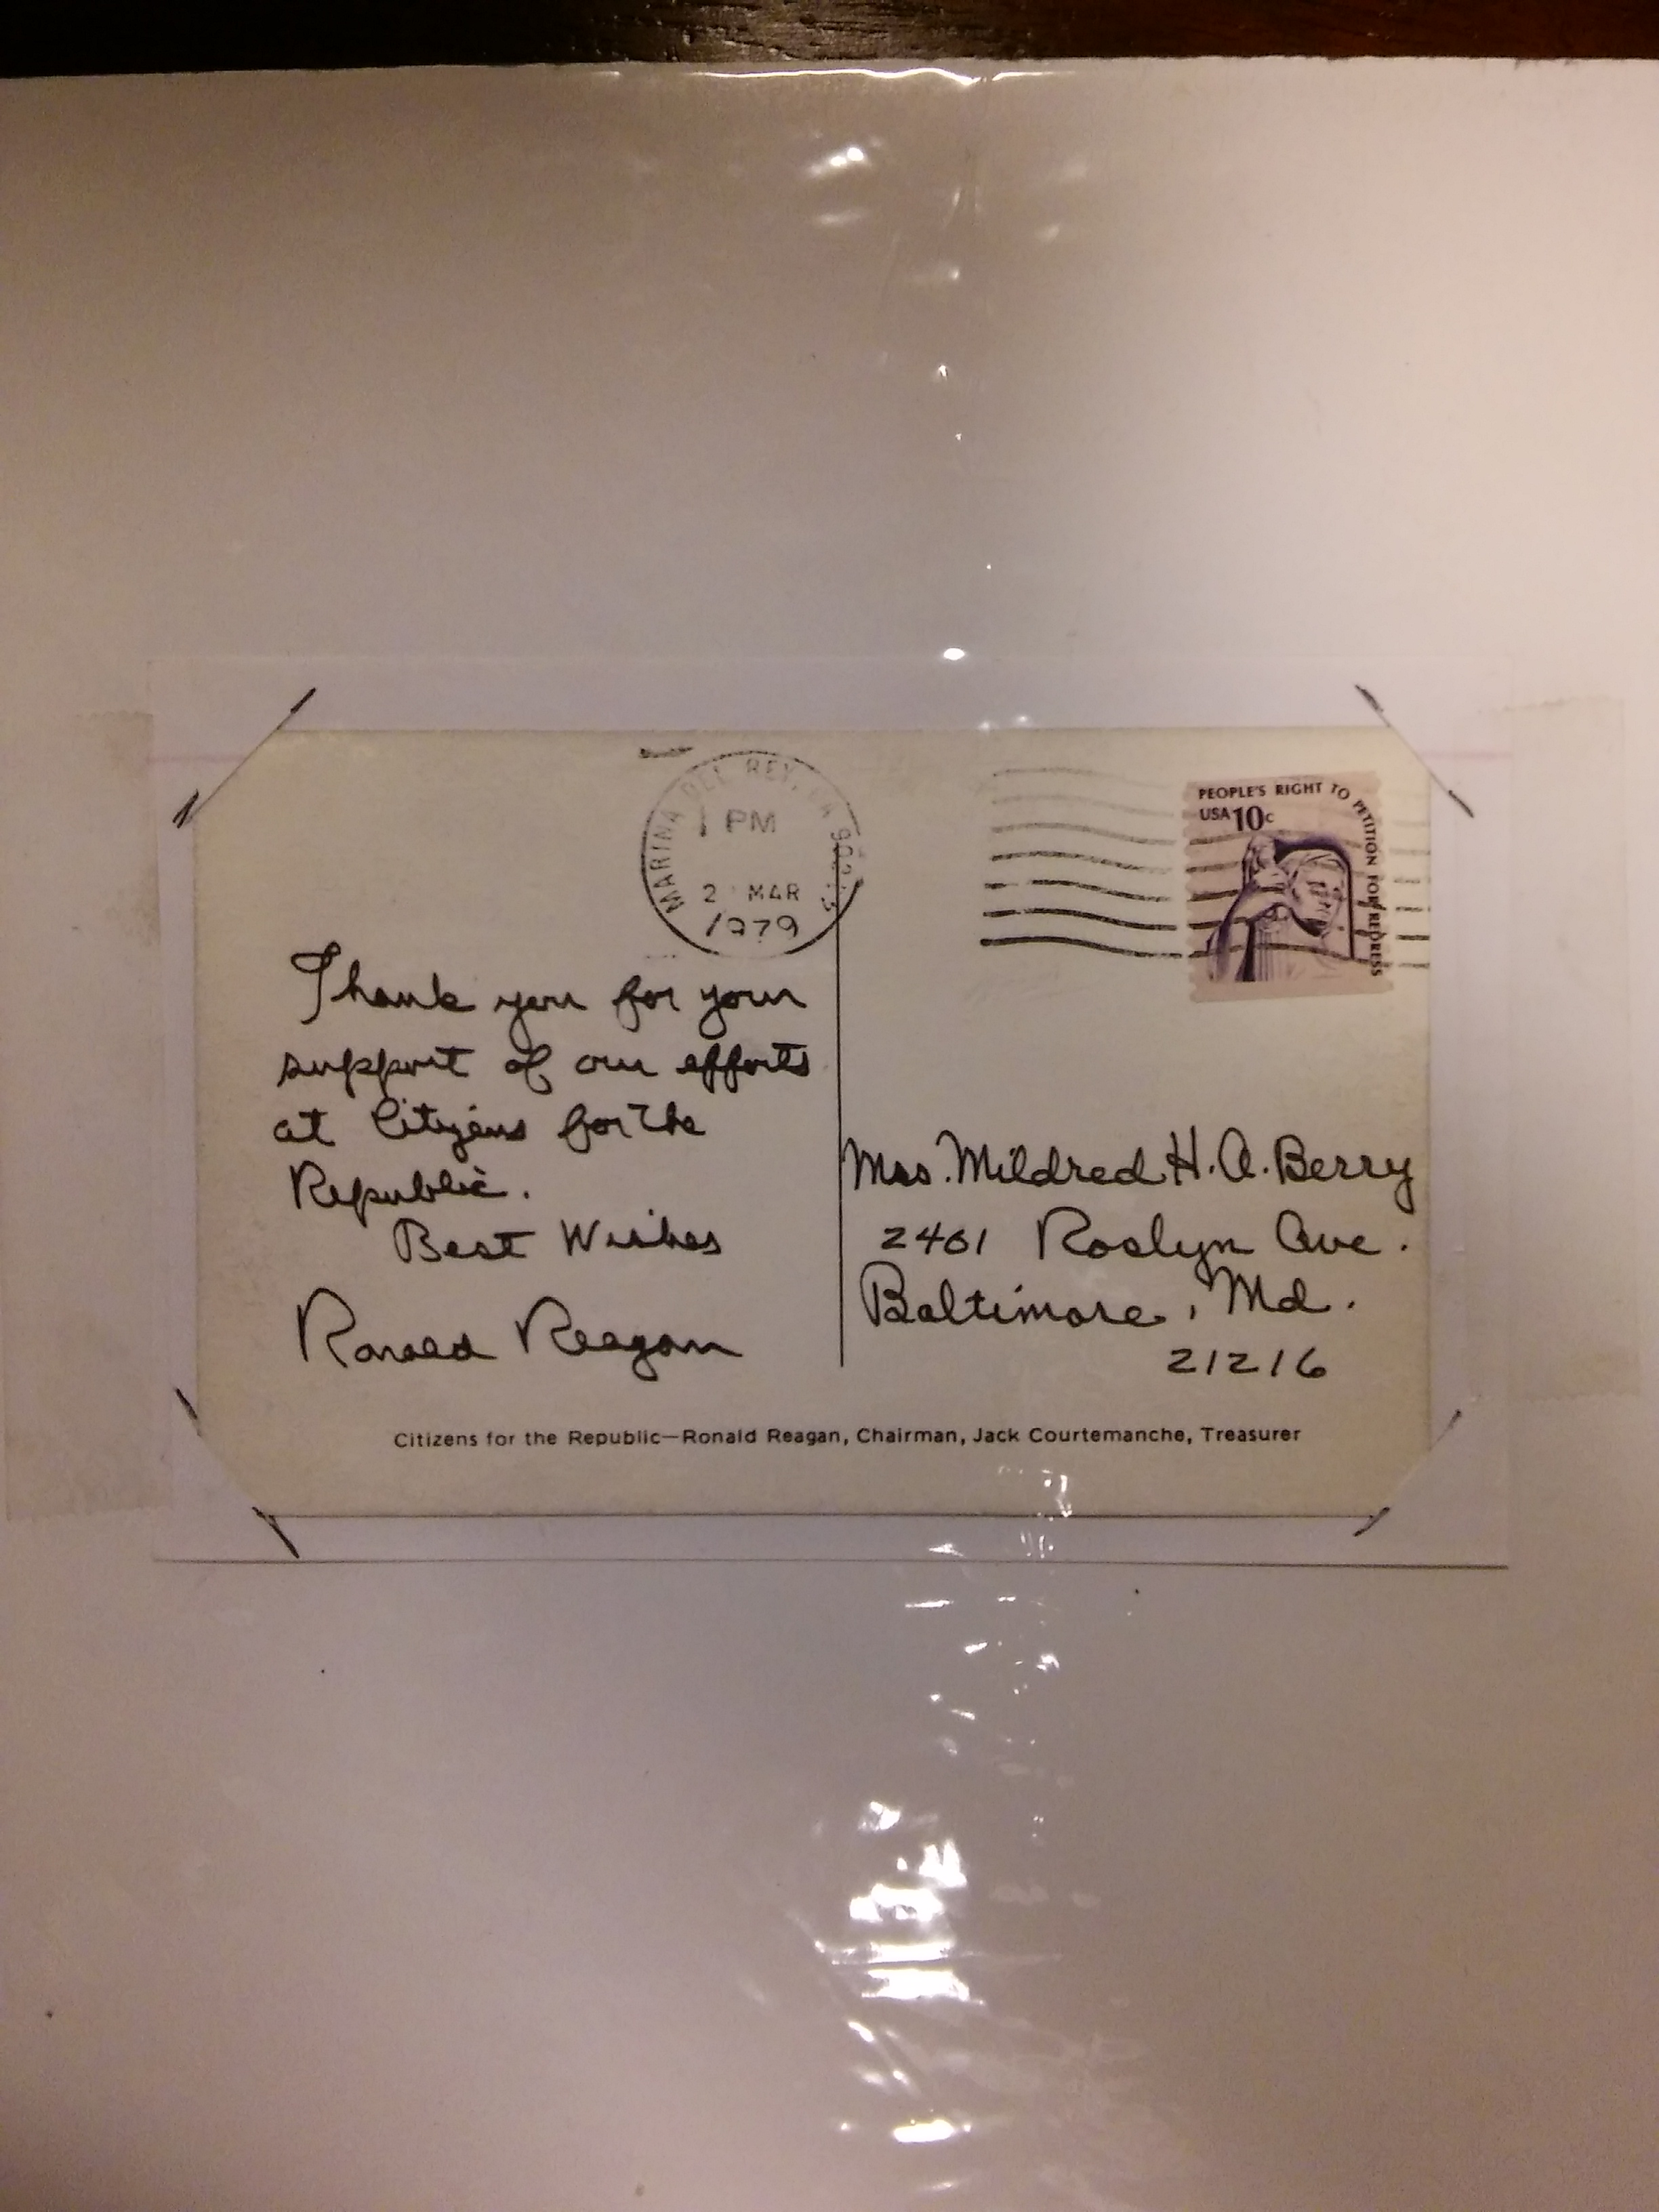 MARINA DEL REY, CA
PM
2 MAR
1979
PEOPLE'S RIGHT TO PETITION FOR REDRESS
USA 10c
Thank you for your
support of our efforts
at Citizens for the
Republic.
Best Wishes
Ronald Reagan
Mrs. Mildred H. A. Berry
2401 Roslyn Ave.
Baltimore, Md.
21216
Citizens for the Republic—Ronald Reagan, Chairman, Jack Courtemanche, Treasurer